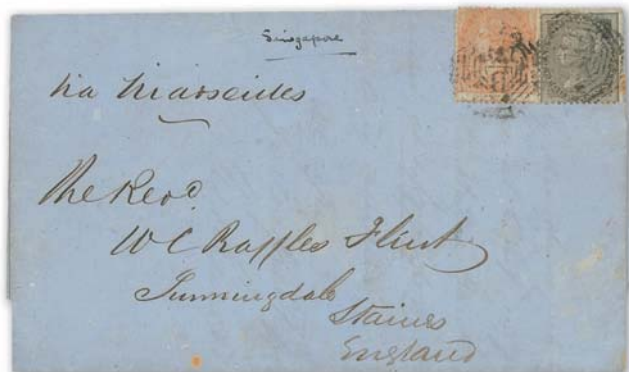 Singapore
via Marseilles
The Revd
W C Raffles Flint
Sunningdale
Staines
England